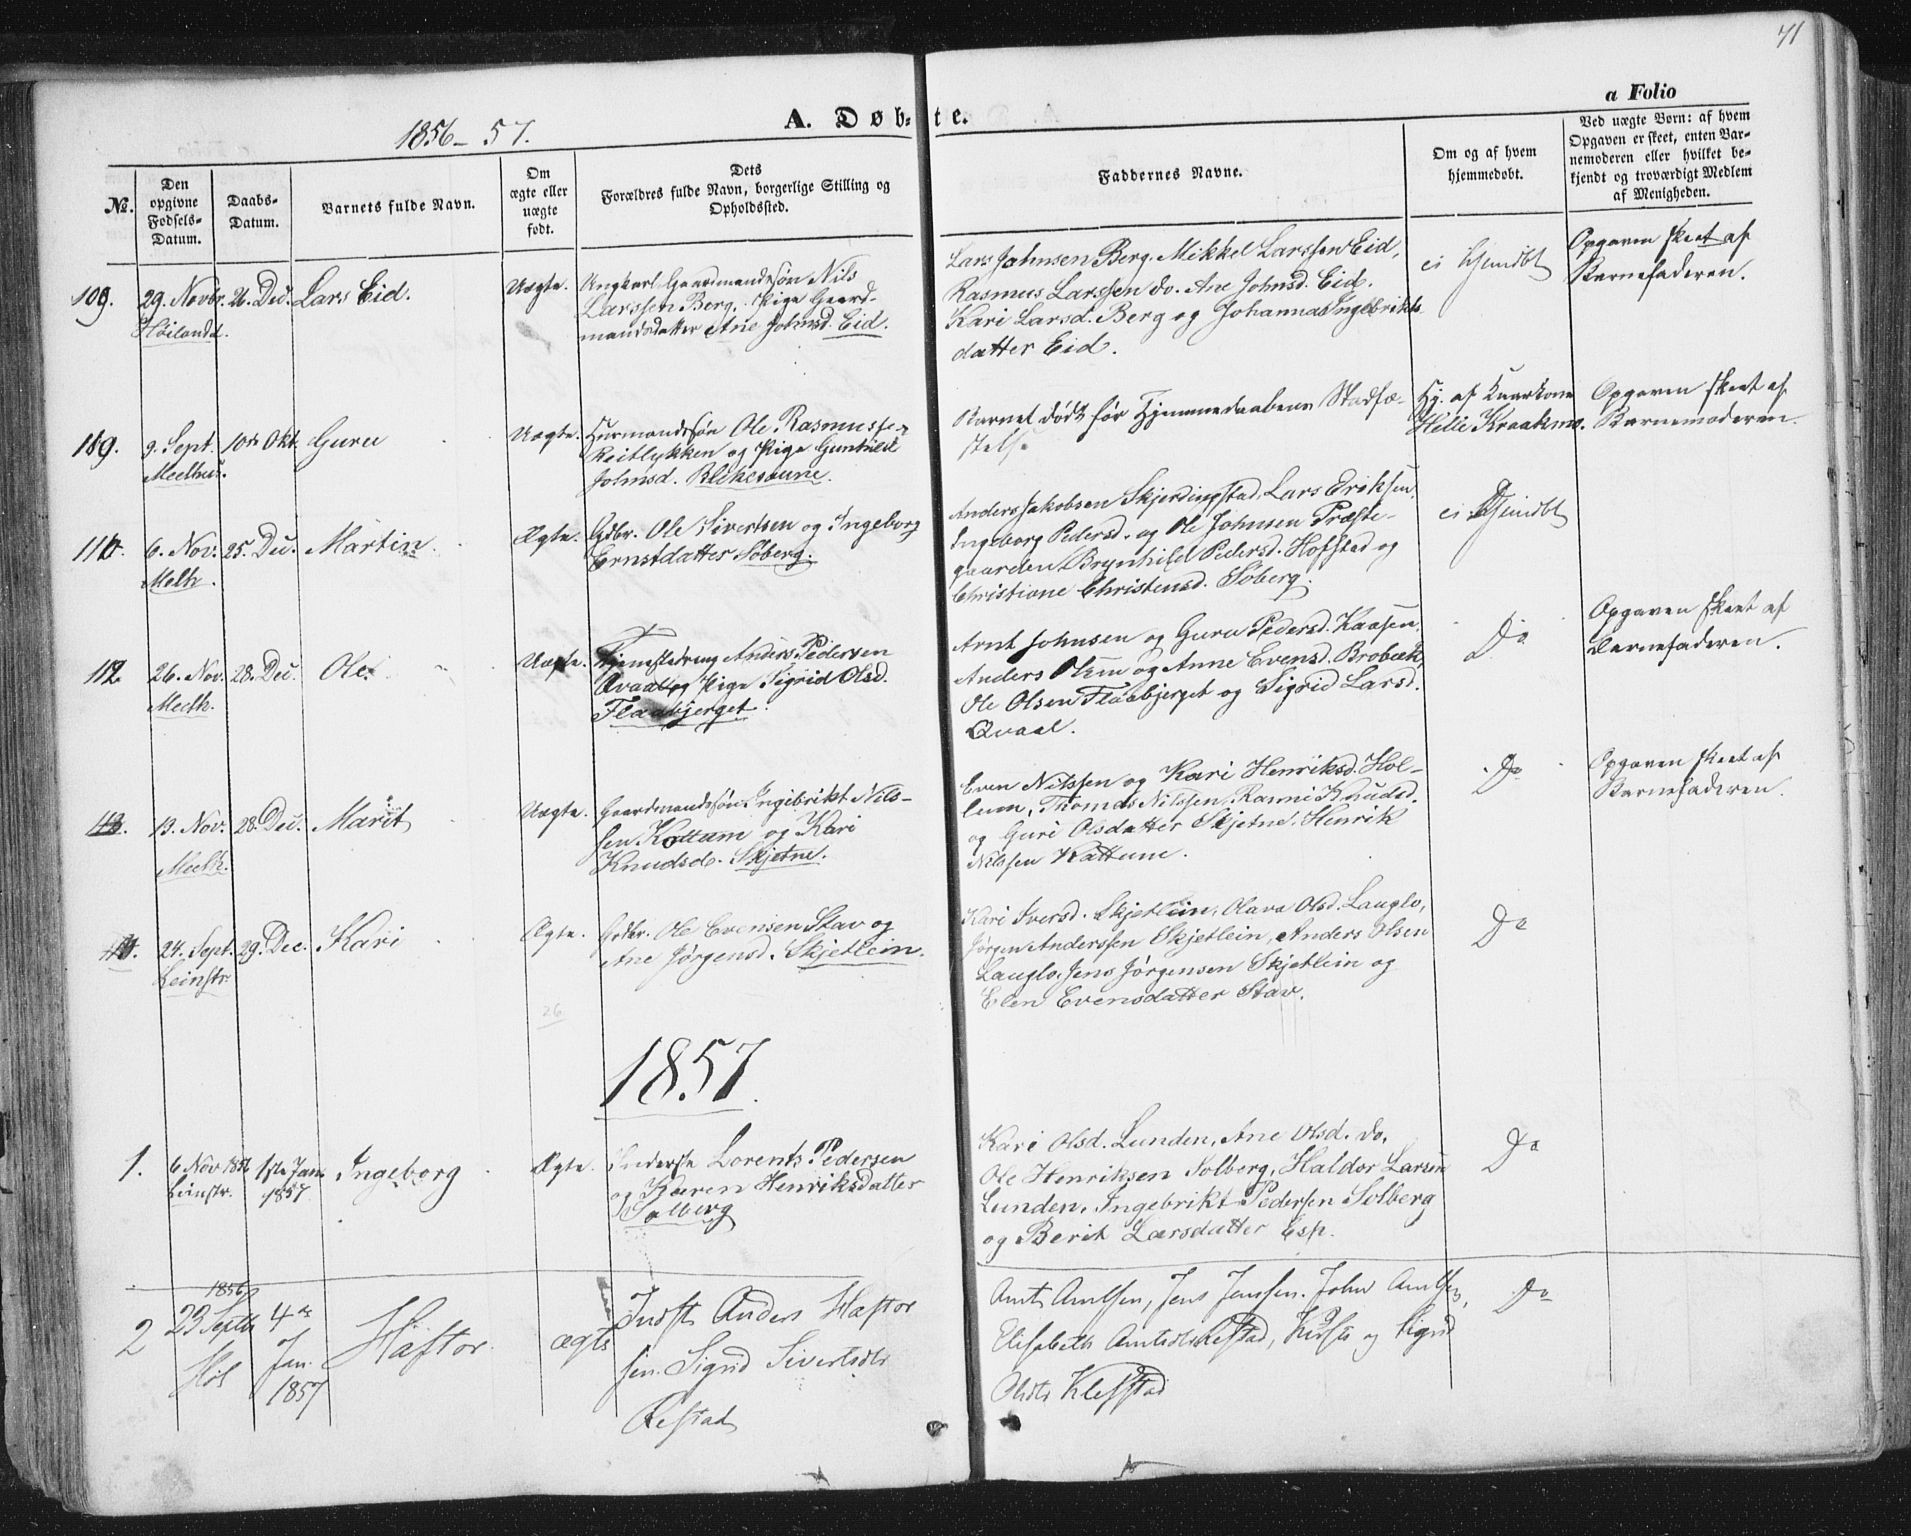 71
a Folio
1856-57.
A. Døbte.
№.
Den opgivne Fødsels-Datum.
Daabs-Datum.
Barnets fulde Navn.
Om ægte eller uægte født.
Dets Forældres fulde Navn, borgerlige Stilling og Opholdssted.
Faddernes Navne.
Om og af hvem hjemmedøbt.
Ved uægte Børn: af hvem Opgaven er skeet, enten Barnemoderen eller hvilket bekjendt og troværdigt Medlem af Menigheden.
109. 29. Novbr. 26. Dec. Lars Eid. Uægte. Ungkarl Gaardmandssøn Nils
Høilandt. Larssen Berg. Pige Gaard-
mandsdatter Ane Johnsd. Eid.
Lars Johnsen Berg. Mikkel Larssen Eid,
Rasmus Larssen do. Ane Johnsd. Eid.
Kari Larsd. Berg og Johanna Ingebrikts
datter Eid.
ei hjemdbt
Opgaven skeet af
Barnefaderen.
9. Sept. 10de Okt. Guru Uægte. Huusmandssøn Ole Rasmussen
Meelhus. Reitlykken og Pige Gunhild
Johnsd. Blekesaune.
Barnet dødt før Hjemmedaabens Stadfæ-
stelse
Hj. af Kaarkone
Helle Kraakmo.
Opgaven skeet af
Barnemoderen.
6. Nov. 25. Dec. Martin Ægte. Gdbr. Ole Sivertsen og Ingeborg
Melh. Ernstdatter Søberg.
Anders Jakobsen Skjerdingstad. Lars Eriksen,
Ingeborg Pedersd. og Ole Johnsen Præste-
gaarden, Brynhild Pedersd. Hofstad og
Christiane Christensd. Søberg.
ei hjemdbt
112. 26. Nov. 28. Dec. Ole Uægte. Tjenestedreng Anders Pedersen
Meelh. Qvaal og Pige Sigrid Olsd.
Flaabjerget.
Arnt Johnsen og Guru Pedersd. Kaasen,
Anders Olsen og Anne Evensd. Brobæk,
Ole Olsen Flaabjerget og Sigrid Larsd.
Qvaal.
Do
Opgaven skeet af
Barnefaderen.
13. Nov. 28. Dec. Marit Uægte. Gaardmandssøn Ingebrikt Nils-
Meelh. sen Kattum og Kari
Knudsd. Skjetne.
Even Nilssen og Kari Henriksd. Hol-
lum, Thomas Nilssen, Ranni Knudsd.
og Guri Olsdatter Skjetne. Henrik
Nilssen Kattum.
Do
Opgaven skeet af
Barnefaderen.
24. Sept. 29. Dec. Kari Ægte. Gdbr. Ole Evensen Stav og
Leinstr. Ane Jørgensd. Skjetlein.
Kari Iversd. Skjetlein, Olava Olsd. Lauglo,
Jørgen Anderssen Skjetlein, Anders Olsen
Lauglo, Jens Jørgensen Skjetlein og
Elen Evensdatter Stav.
Do
26
1857.
1. 6 Nov 1856 1ste Jan. Ingeborg Ægte. Inderste Lorents Pedersen
Leinstr. 1857. og Karen Henriksdatter
Solberg
Kari Olsd. Lunden, Ane Olsd. do.
Ole Henriksen Solberg, Haldor Larsen
Lunden, Ingebrikt Pedersen Solberg
og Berit Larsdatter Esp.
Do
1856
2 23 Septbr 4de Haftor. ægte Indst Anders Haftor
Høl Jan. sen. Sigrid Sivertsdtr
1857 Restad
Arnt Arntsen, Jens Jenssen. John Arntsen,
Elisabeth Arntsdtr Restad, Kirsti og Sigrid
Olsdtr Klefstad
Do